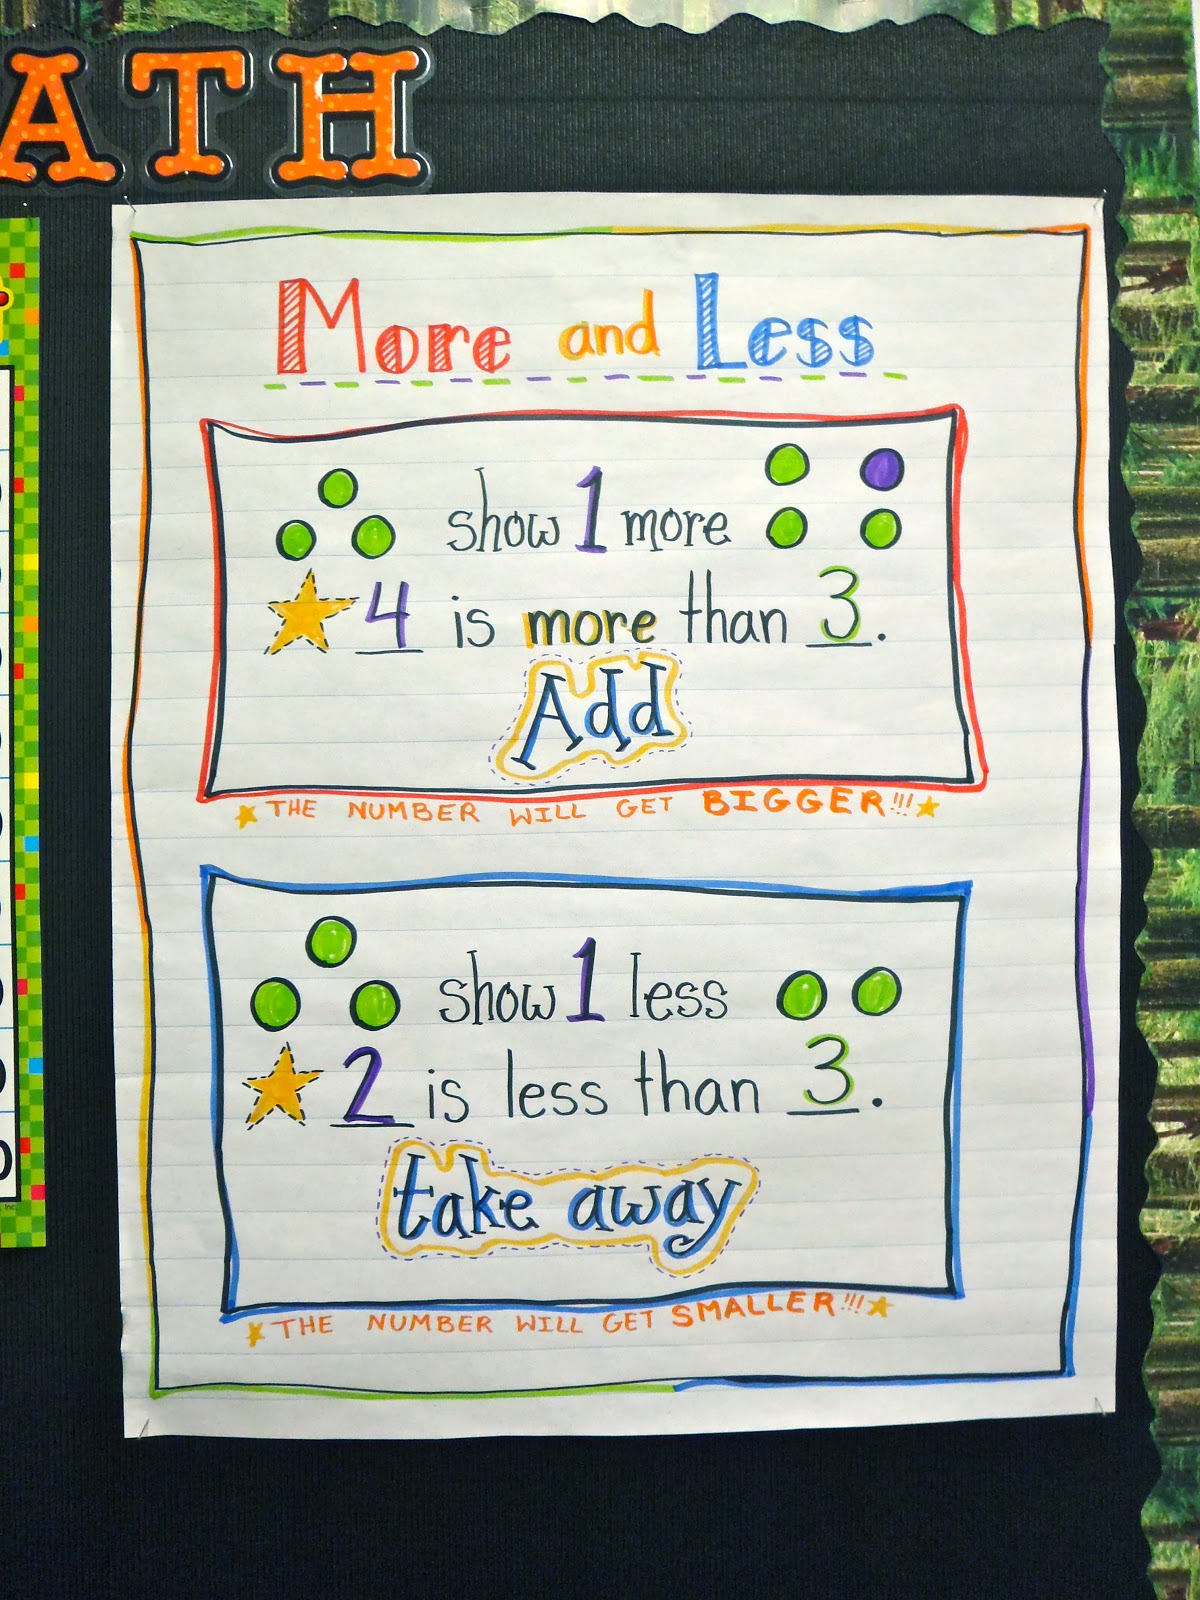 ATH
More and Less
show 1 more
4 is more than 3.
Add
THE NUMBER WILL GET BIGGER!!!
show 1 less
2 is less than 3.
take away
THE NUMBER WILL GET SMALLER!!!